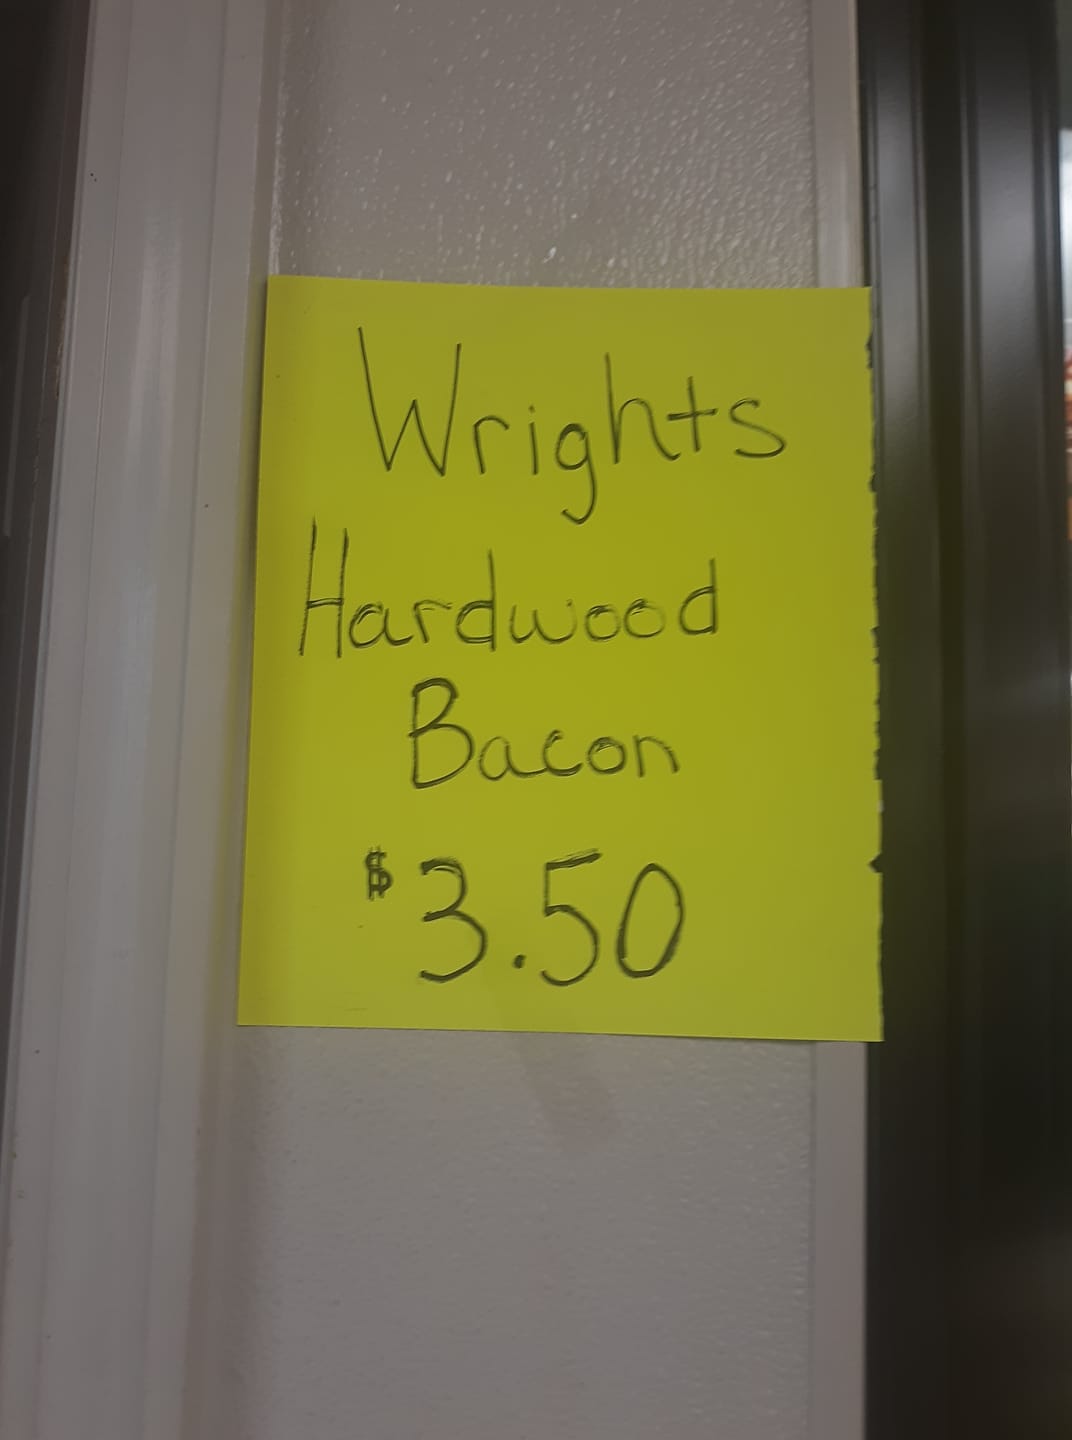 Wrights
Hardwood
Bacon
$3.50